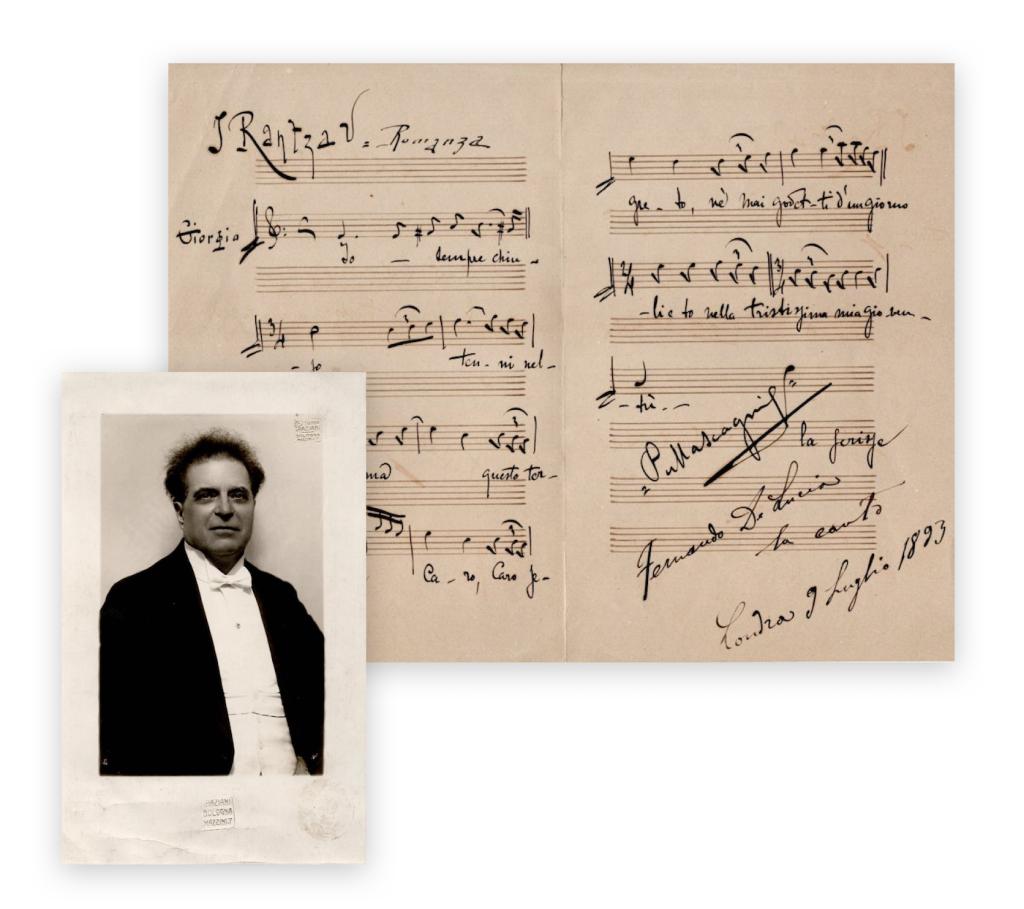 I Rantzau = Romanza
Giorgio
Io — sempre chiu-
-so ten-ni nel-
questo ter-
Ca-ro, Caro se-
gre-to, nè mai godet-ti d'un giorno
-lieto nella tristissima mia gioven-
-tù.--
"PMascagni"
la scrisse
Fernando De Lucia
la cantò
Londra 9 Luglio 1893
BOLOGNA